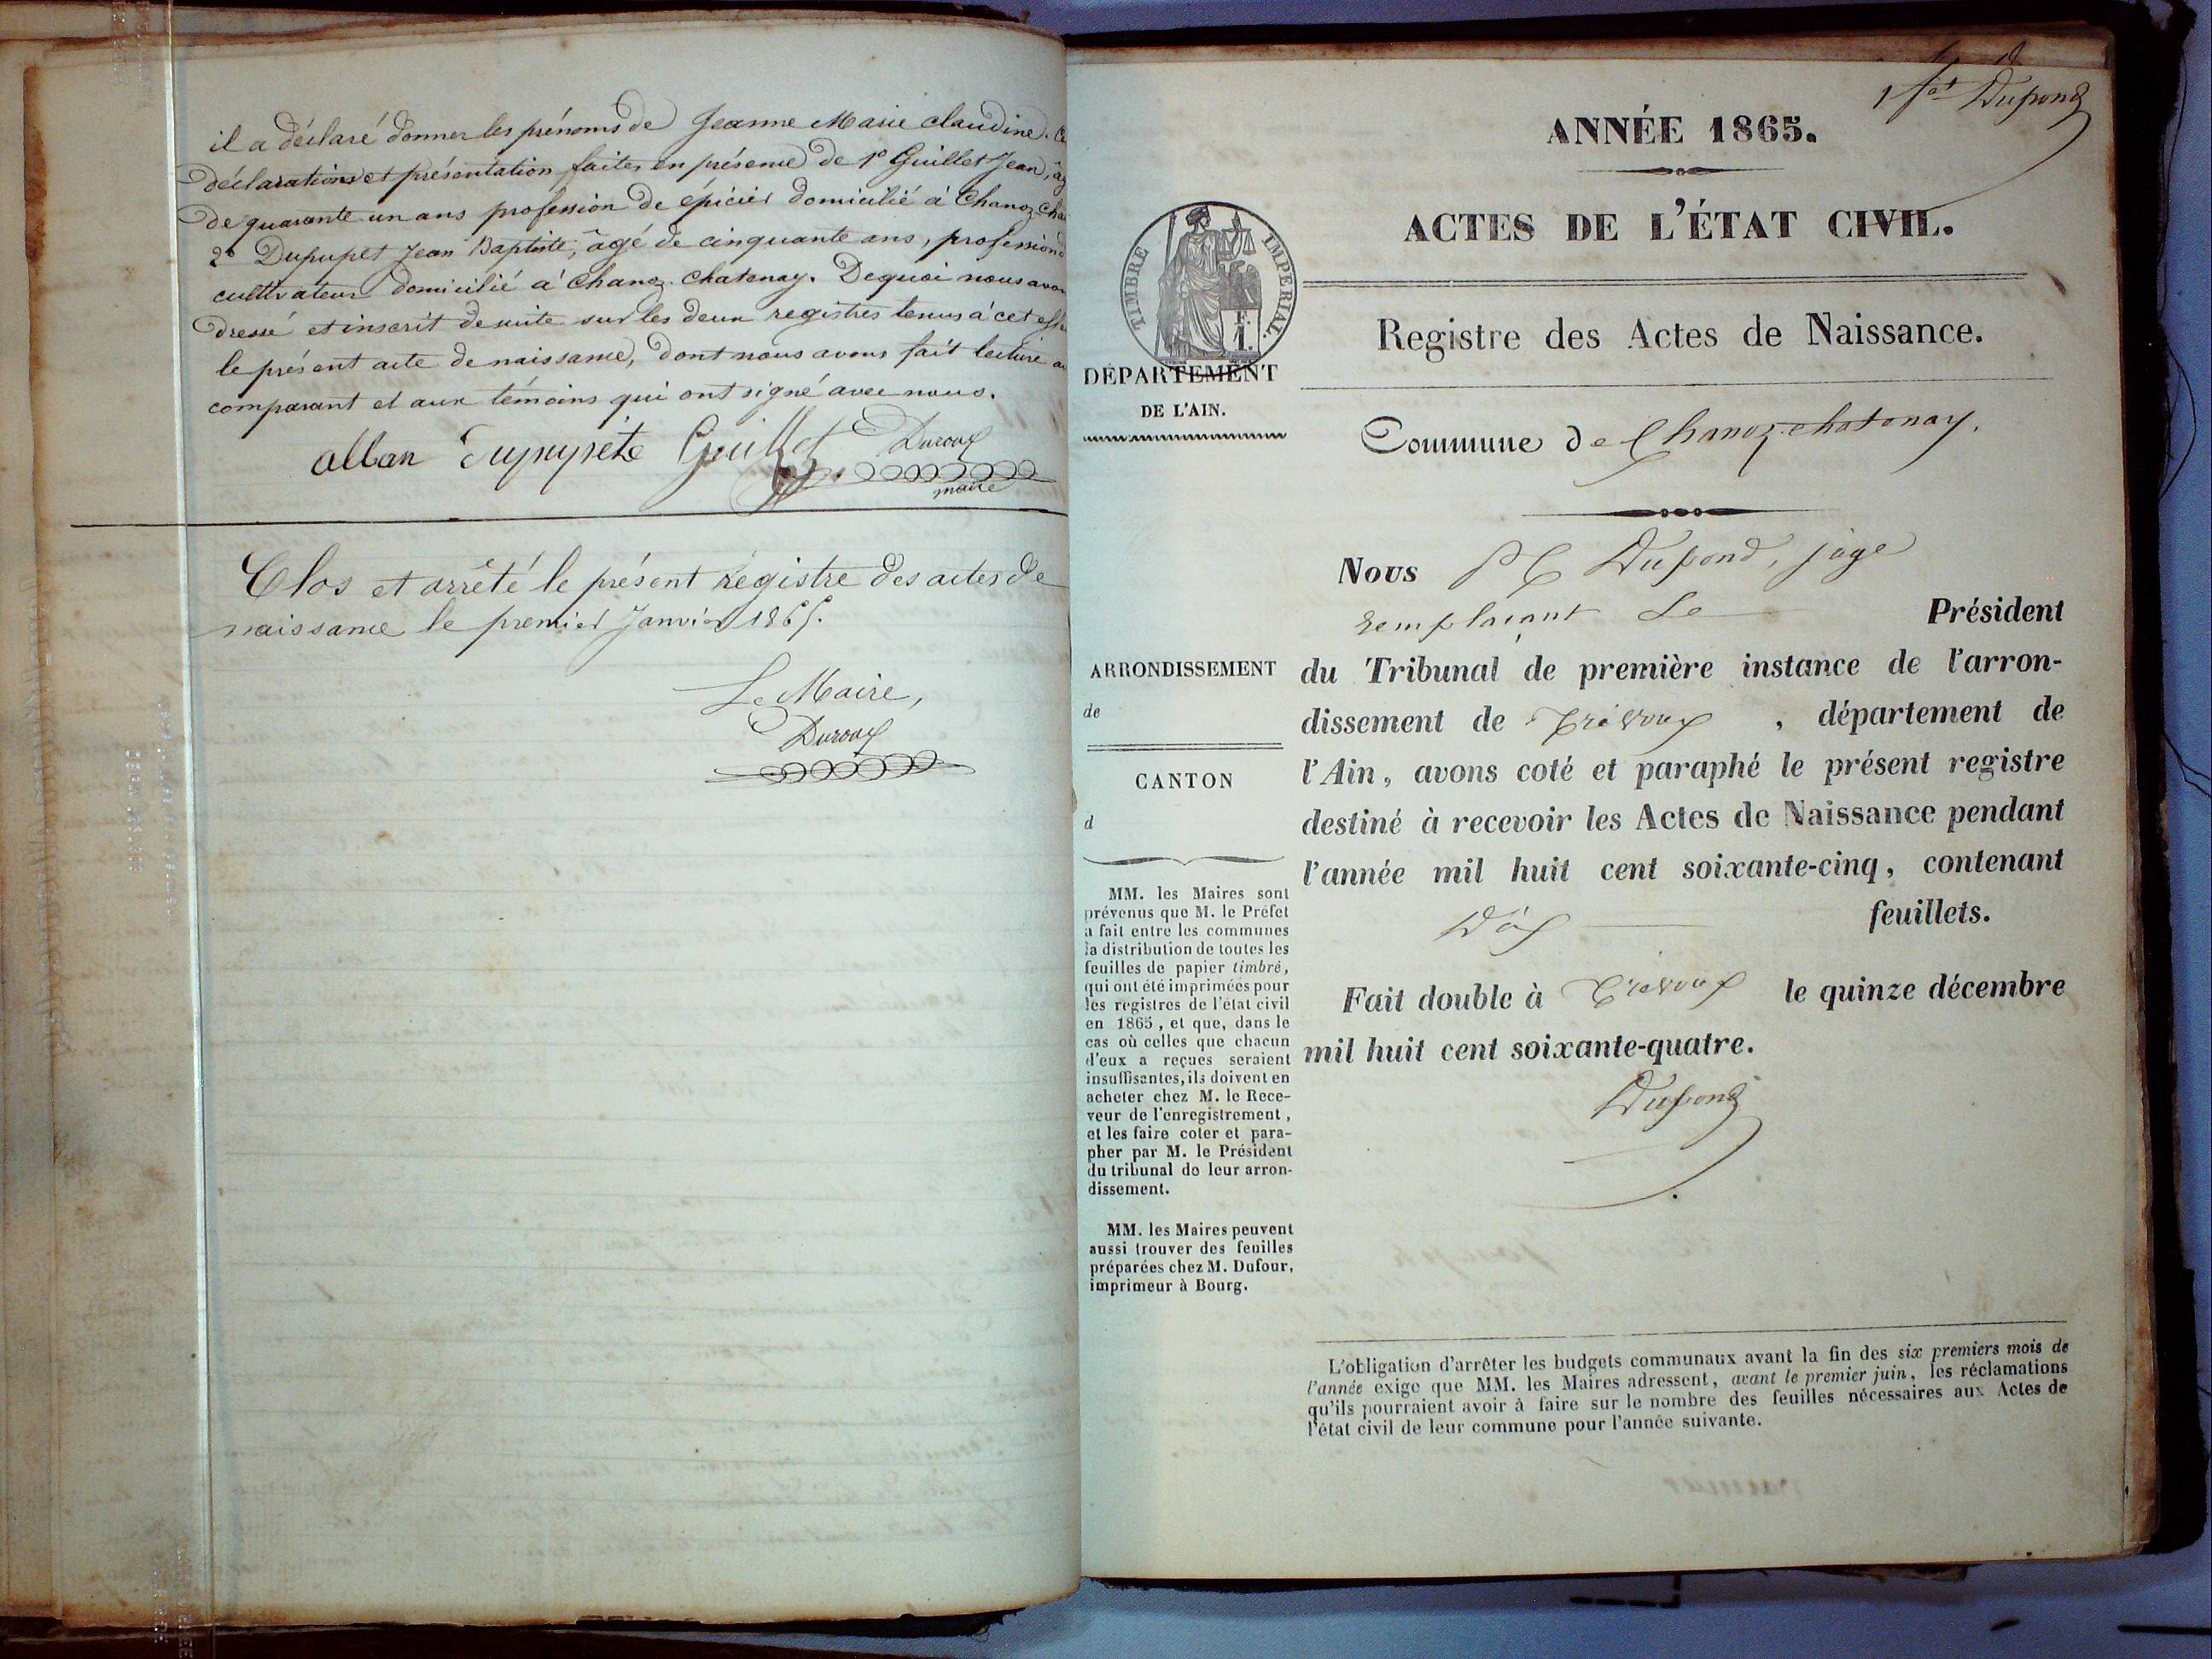 il a déclaré donner les prénoms de Jeanne Marie claudine. Ce
déclaration et présentation faites en présence de 1º Guillet Jean, âg
de quarante un ans profession de épicier domicilié à Chanoz cha
2º Dupupet Jean Baptiste, âgé de cinquante ans, profession d
cultivateur domicilié à Chanoz-Chatenay. De quoi nous avon
dressé et inscrit de suite sur les deux registres tenus à cet effe
le présent acte de naissance, dont nous avons fait lecture au
comparant et aux témoins qui ont signé avec nous.
allan Dupupéte Guillet Duroux
maire
Clos et arrêté le présent régistre des actes de
naissance le premier Janvier 1865.
Le Maire,
Duroux
1 fet Dupond
ANNÉE 1865.
ACTES DE L'ÉTAT CIVIL.
TIMBRE IMPÉRIAL.
1 F.
Registre des Actes de Naissance.
DÉPARTEMENT
DE L'AIN.
Commune de Chanoz-chatenay.
Nous Dupond, juge
remplaçant Le Président
du Tribunal de première instance de l'arron-
dissement de Trévoux, département de
l'Ain, avons coté et paraphé le présent registre
destiné à recevoir les Actes de Naissance pendant
l'année mil huit cent soixante-cinq, contenant
feuillets.
Fait double à Trévoux le quinze décembre
mil huit cent soixante-quatre.
Dupond
ARRONDISSEMENT
de
CANTON
d
MM. les Maires sont
prévenus que M. le Préfet
a fait entre les communes
la distribution de toutes les
feuilles de papier timbré,
qui ont été imprimées pour
les registres de l'état civil
en 1865, et que, dans le
cas où celles que chacun
d'eux a reçues seraient
insuffisantes, ils doivent en
acheter chez M. le Rece-
veur de l'enregistrement,
et les faire coter et para-
pher par M. le Président
du tribunal de leur arron-
dissement.
MM. les Maires peuvent
aussi trouver des feuilles
préparées chez M. Dufour,
imprimeur à Bourg.
L'obligation d'arrêter les budgets communaux avant la fin des six premiers mois de
l'année exige que MM. les Maires adressent, avant le premier juin, les réclamations
qu'ils pourraient avoir à faire sur le nombre des feuilles nécessaires aux Actes de
l'état civil de leur commune pour l'année suivante.